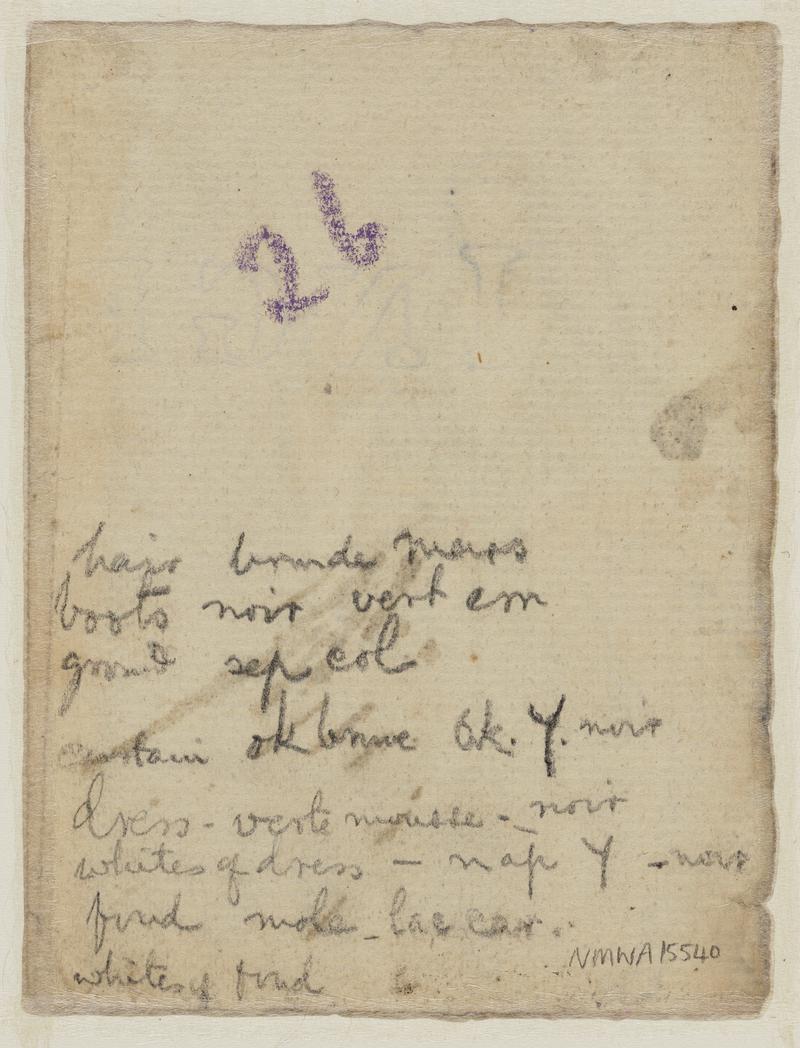 26
hair brunde mars
boots noir vert em
ground sep col
curtain ok brune Ok. Y. noir
dress - verte mousse - noir
whites of dress - nap Y - noir
fond mole - lac car.
whites of fond
NMWA 15540